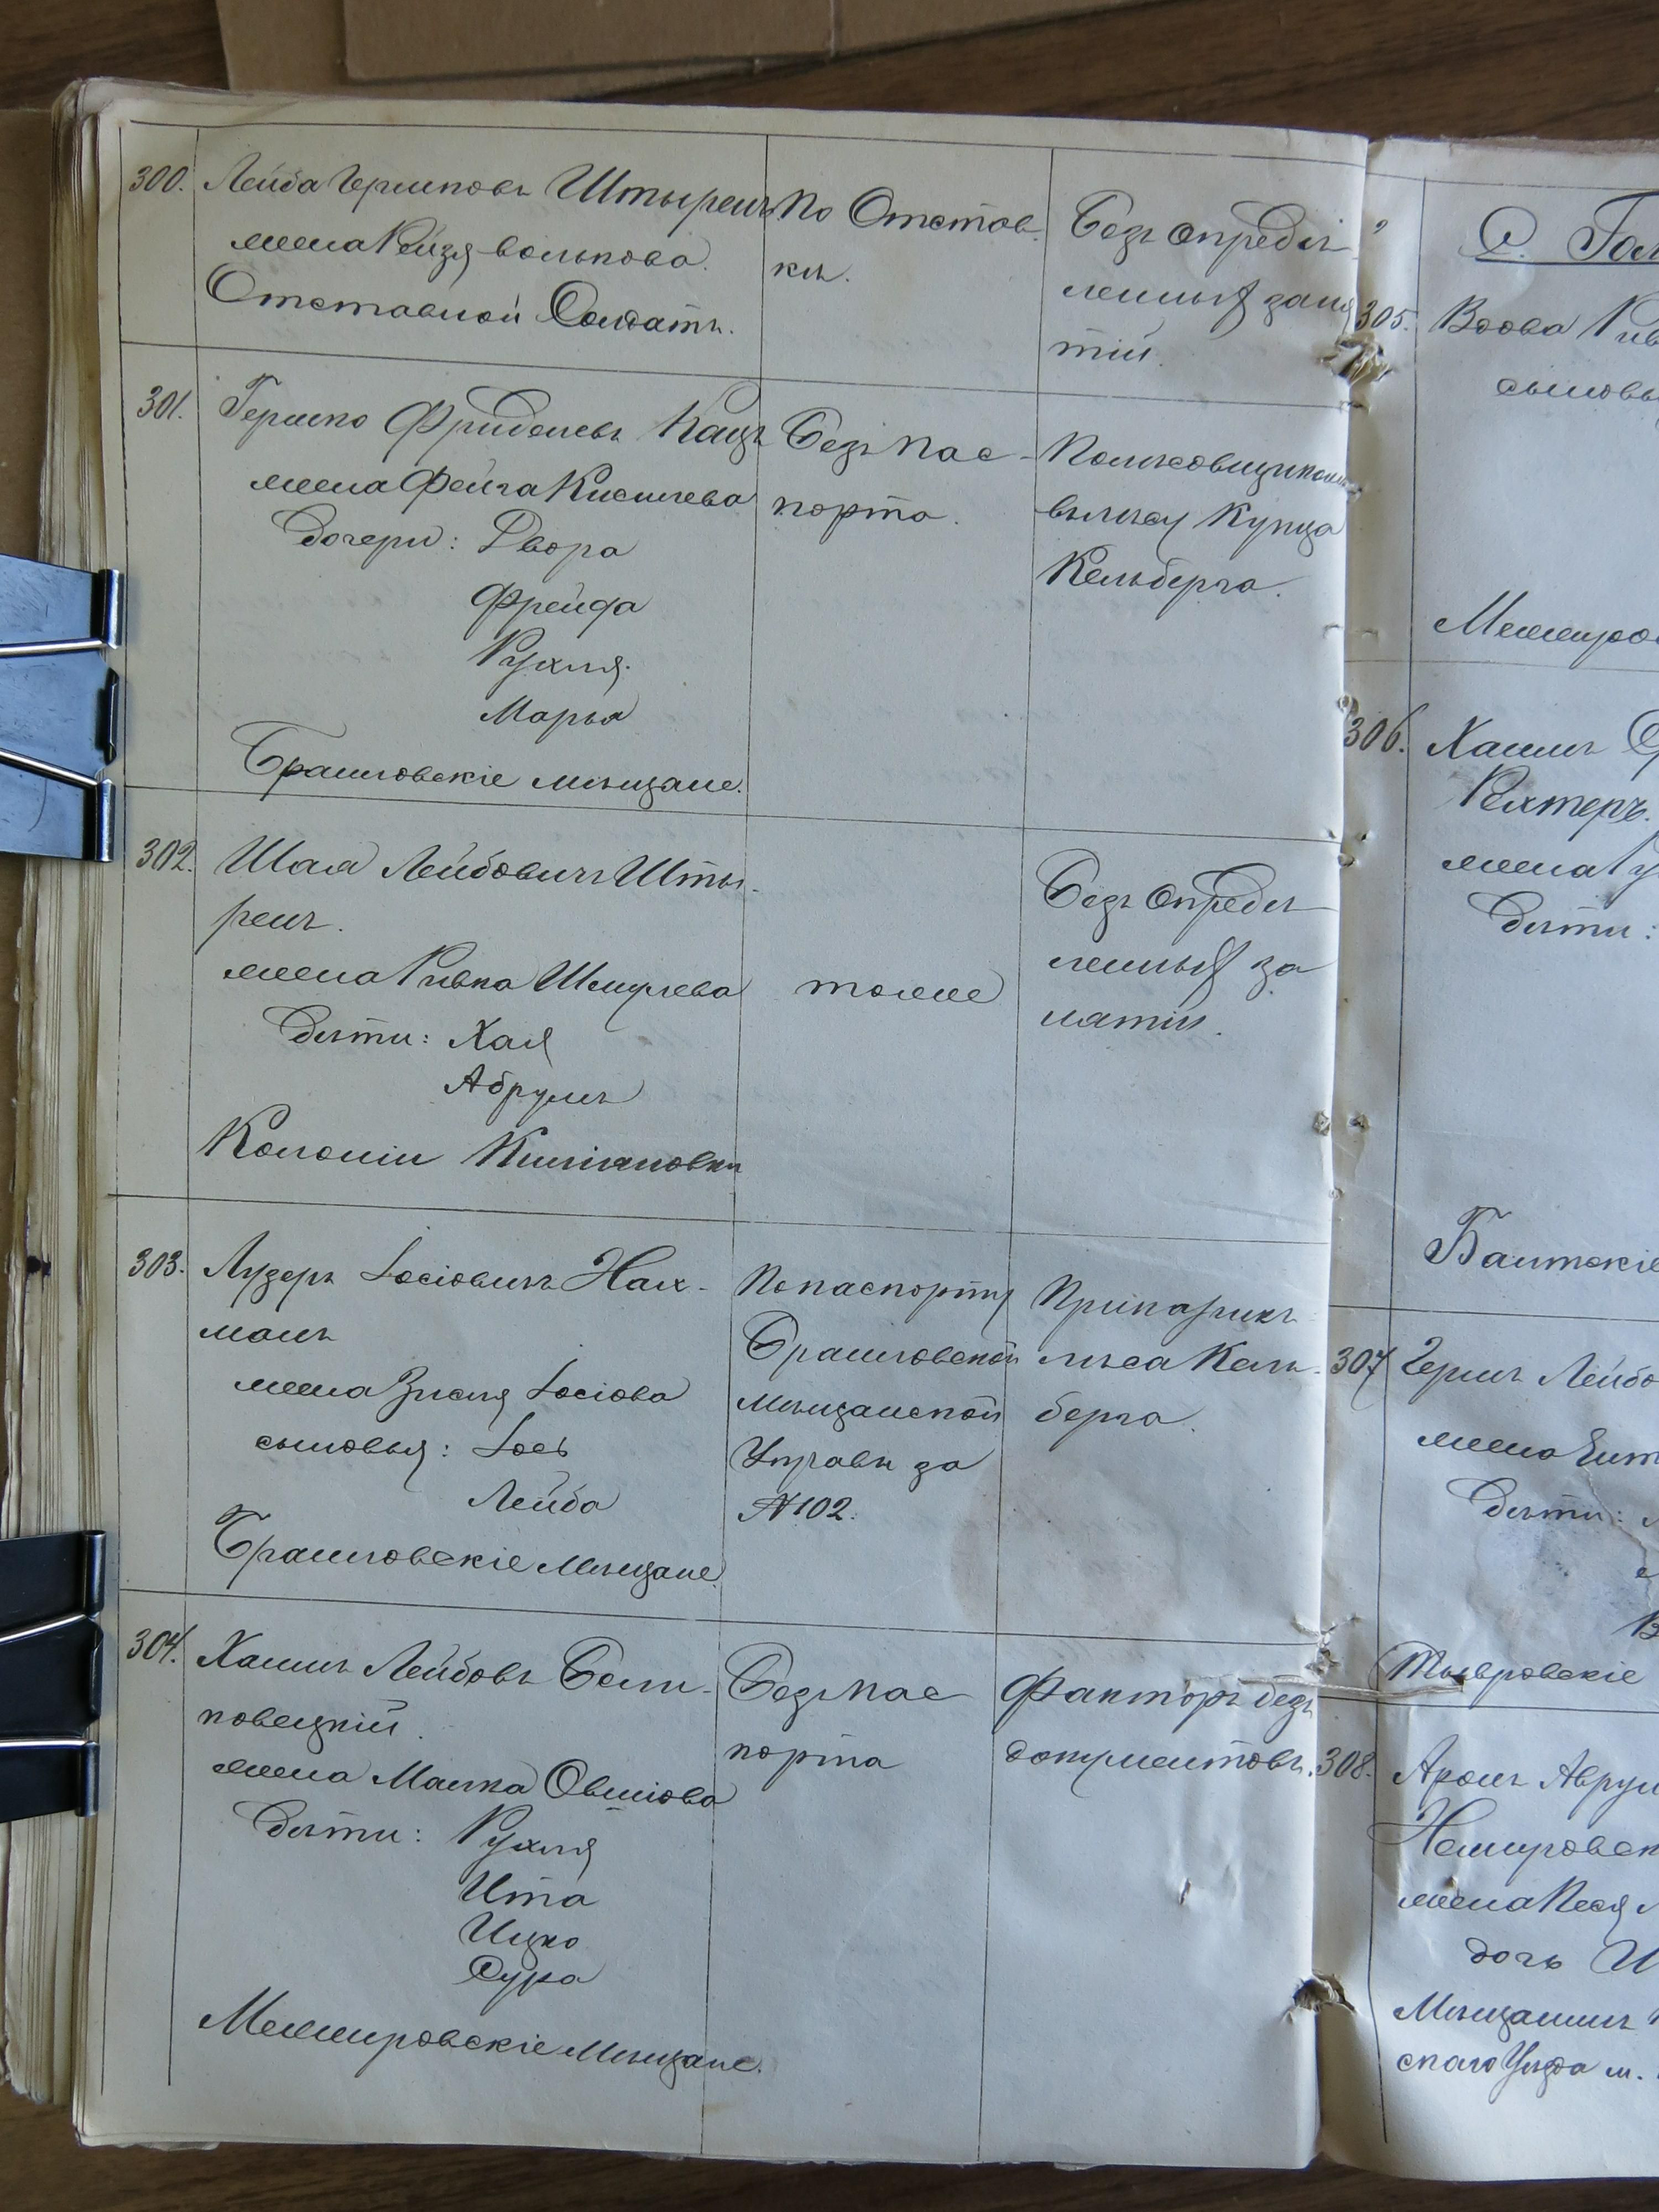 300.
Лейба Гершковъ Штыренъ
жена Рейзя Волькова.
Отставной Солдатъ.
По Отстав-
кѣ.
Безъ опредѣ
ленныхъ заня
тій.
301.
Гершко Фриделевъ Кацъ
жена Фейга Кисилева
дочери: Двора
Фрейда
Рухля.
Марья
Браиловскіе мѣщане.
Безъ пас-
порта.
въ лѣсу Купца
Кельберга.
302.
Шая Лейбовичъ Шты-
ренъ.
жена Ривка Шмулева
дѣти: Хая
Абрумъ
Колоніи
тоже
Безъ опредѣ
ленныхъ за
нятій.
303.
Лузеръ Іосіовичъ Нах-
манъ
жена Зисля Іосіова
сыновья: Іось
Лейба
Браиловскіе Мѣщане.
По паспорту
Браиловской
Мѣщанской
Управы за
№ 102.
Прикащикъ
лѣса Кель-
берга.
304.
Хаимъ Лейбовъ Бели-
ковецкій.
жена Малка Овшіова
дѣти: Рухля
Ита
Ицко
Сура
Межировскіе Мѣщане.
Безъ пас
порта
Факторъ безъ
документовъ.
С.
305.
Вдова
сыновья
306.
Хаимъ
Рехтеръ.
жена
дѣти:
Балтскіе
307
Гершъ
жена
дѣти:
Тывровскіе
308.
Аронъ
жена Песя
дочь
Мѣщанинъ
скаго Уѣзда м.